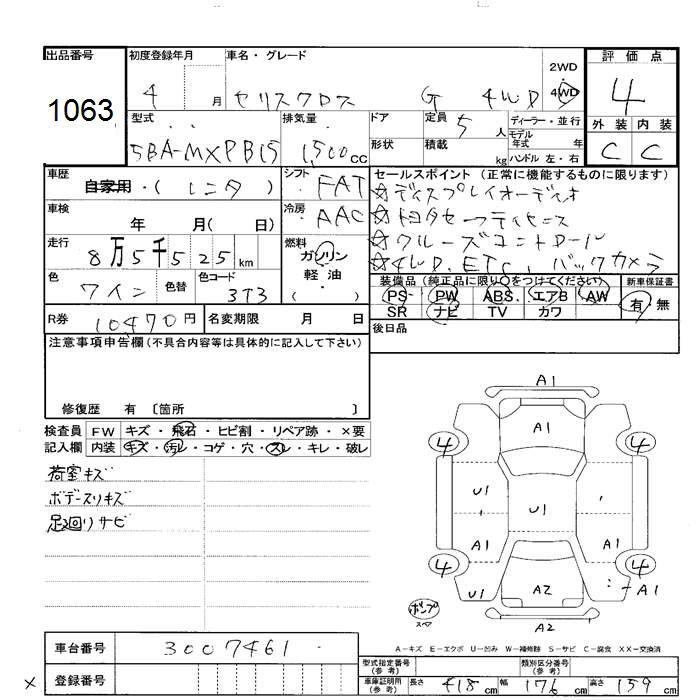 出品番号 初度登録年月 車名・グレード 2WD 評価点
1063 4 月 ヤリスクロス G 4WD 4WD 4
型式 排気量 ドア 定員 5人 ディーラー・並行 外装 内装
5BA-MXPB15 1,500cc 形状 積載 kg モデル年式 年 ハンドル 左・右 C C
車歴 シフト セールスポイント (正常に機能するものに限ります)
自家用・(レンタ) FAT ☆ディスプレイオーディオ
車検 冷房 AAC ☆トヨタセーフティセンス
年 月(日)
走行 燃料 ☆クルーズコントロール
8万5千525km ガソリン ☆4WD. ETC, バックカメラ
色 色替 色コード 軽油 装備品(純正品に限り○をつけてください) 新車保証書
ワイン 3T3 ・( ) PS PW ABS エアB AW 有 無
R券 10470円 名変期限 月 日 SR ナビ TV カワ
注意事項申告欄(不具合内容等は具体的に記入して下さい) 後日品
修復歴 有 〔箇所 〕
検査員 FW キズ・飛石・ヒビ割・リペア跡・×要
記入欄 内装 キズ・汚レ・コゲ・穴・スレ・キレ・破レ
荷室キズ
ボデースリキズ
足廻りサビ
A1
A1
4 4
U1 U1
A1 A1
4 4
U1 A2 A1
A2
ポンプ
スペア
A-キズ E-エクボ U-凹み W-補修跡 S-サビ C-腐食 XX-交換済
車台番号 3007461
型式指定番号(参考) 類別区分番号(参考)
× 登録番号 車庫証明用(参考) 長さ 418cm 幅 176cm 高さ 159cm